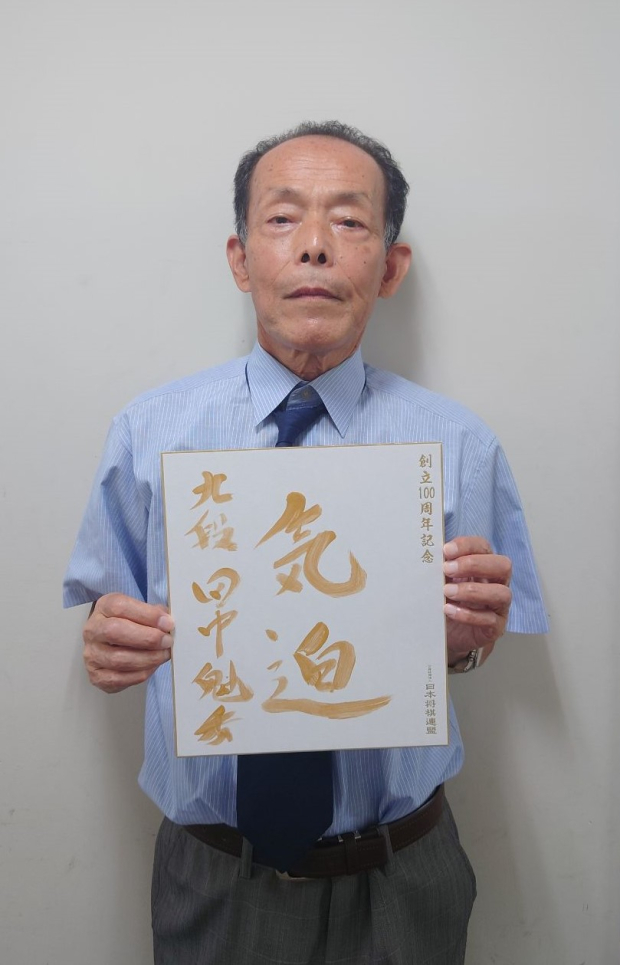 創立100周年記念
日本将棋連盟
気迫
九段 田中魁秀